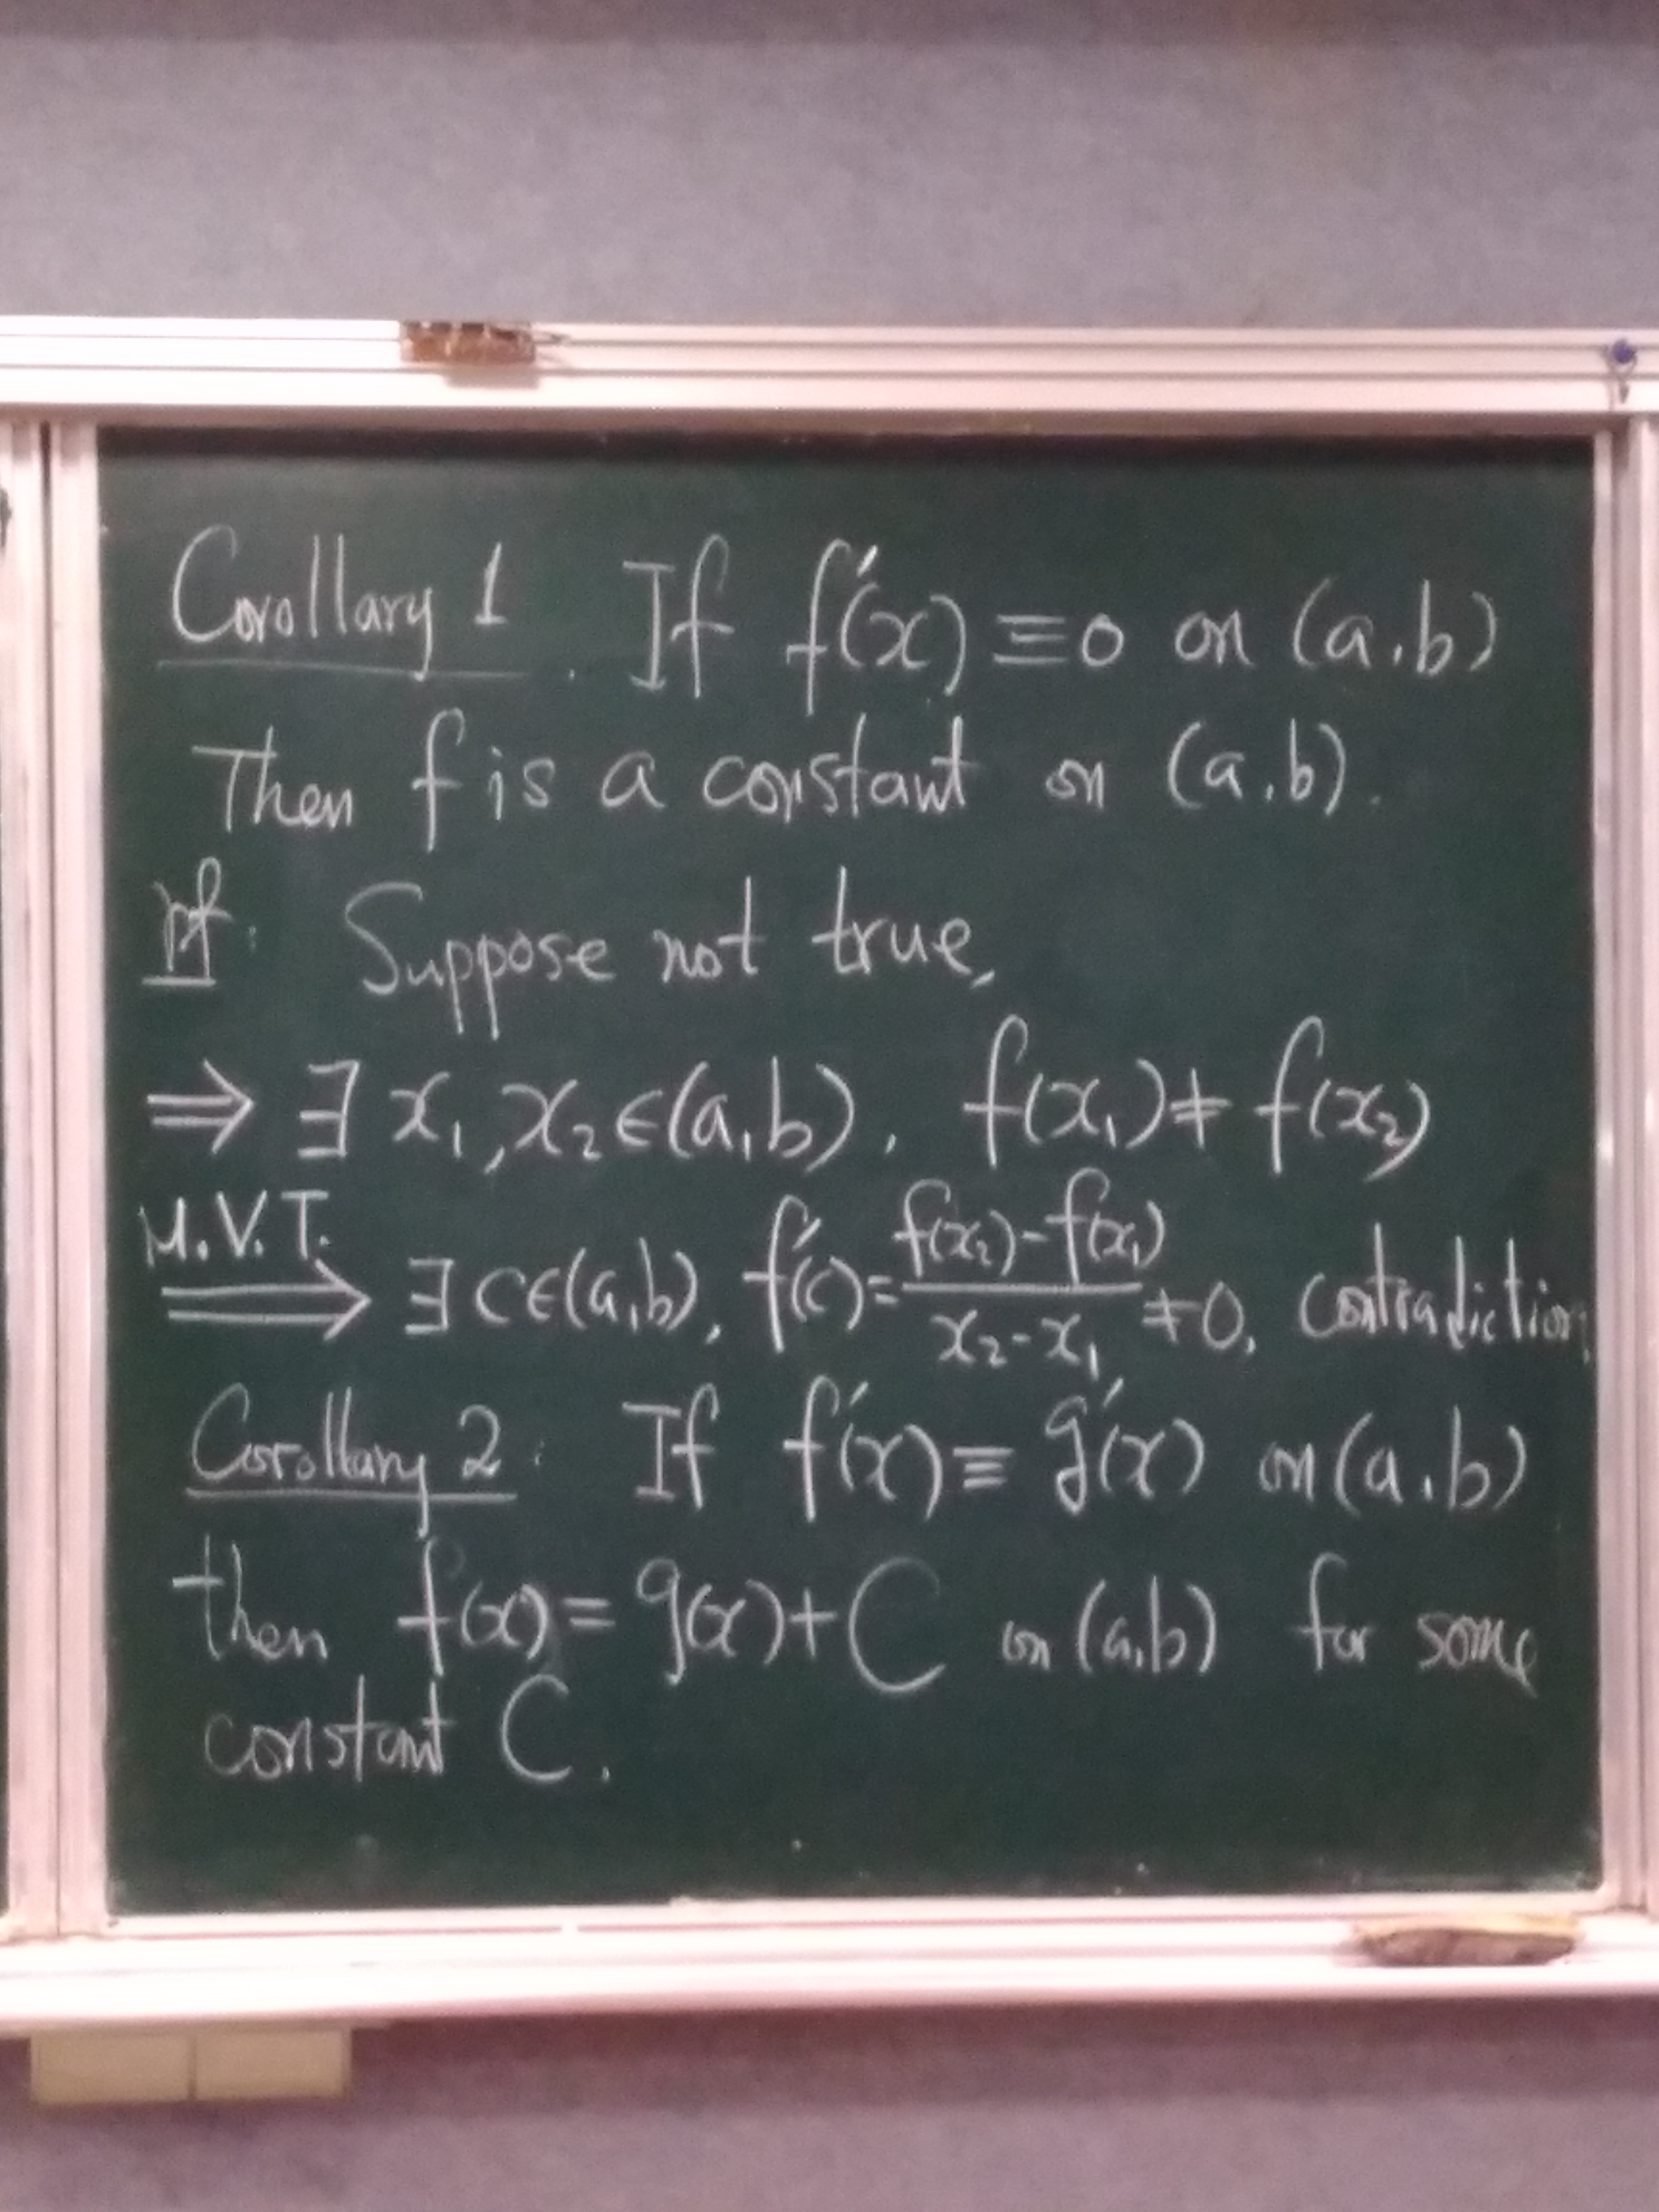 Corollary 1. If f'(x) ≡ 0 on (a,b)
Then f is a constant on (a,b).
pf: Suppose not true,
⇒ ∃ x₁, x₂ ∈ (a,b), f(x₁) ≠ f(x₂)
M.V.T. ⟹ ∃ c ∈ (a,b), f'(c) = (f(x₂) - f(x₁)) / (x₂ - x₁) ≠ 0, contradiction,
Corollary 2: If f'(x) ≡ g'(x) on (a,b)
then f(x) = g(x) + C on (a,b) for some
constant C.